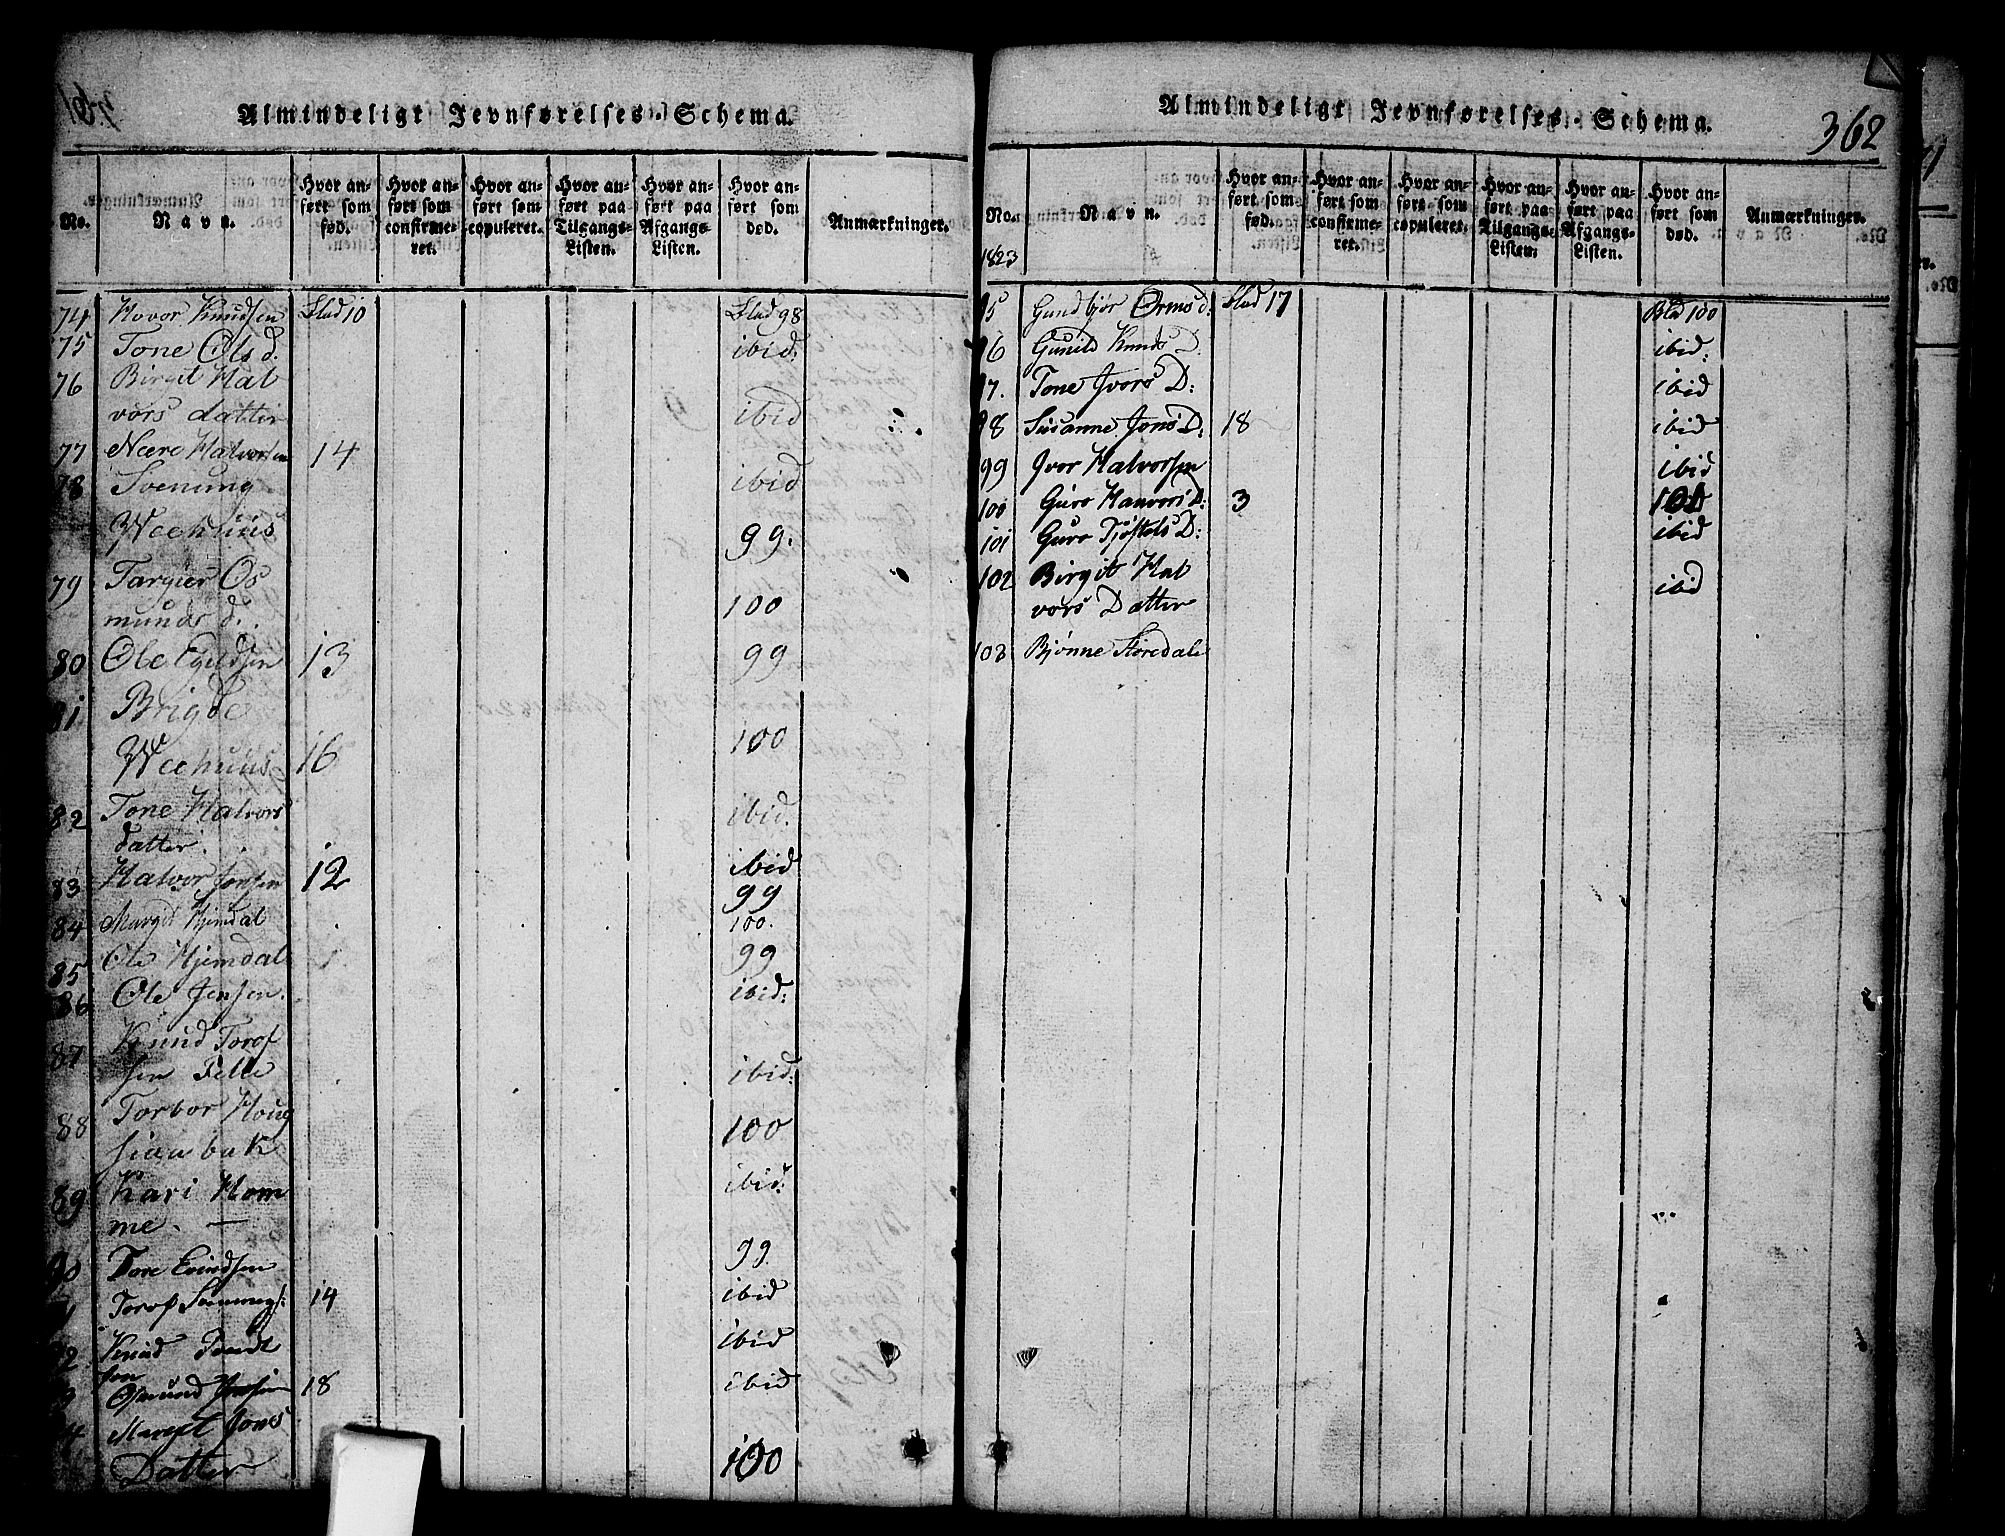 Almindeligt Jevnførelses-Schema.
No. Navn. Hvor anført som fød. Hvor anført som confirmeret. Hvor anført som copuleret. Hvor anført paa Tilgangs-Listen. Hvor anført paa Afgangs-Listen. Hvor anført som død. Anmærkninger.
74 Hovor Knudsen Blad 10 Blad 98
75 Tone Ols d. ibid.
76 Birgit Hal
vors datter ibid
77 Nære Halvorsen 14
78 Svenung ibid
Weehuus 99.
79 Targier Os
munds d. 100
80 Ole Egildsen 13 99
81 Brigde
Weehuus 16 100
82 Tone Halvors ibid.
datter.
83 Halvor Jensen 12 ibid
99
84 Margit Hjemdal 100.
85 Ole Hjemdal 1 99
86 Ole Jensen. ibid:
87 Knud Torof
sen Felle ibid:
88 Torbor Houg
sian bak 100
89 Kari Hom ibid:
me. —
90 Tore Evindsen 99.
91 Torof Svenungs: 14 ibid
92 Knud Tundt ibid
sen
93 Osmund 18 ibid
94 Margit Jons
Datter 100
Almindeligt Jevnførelses-Schema. 362
No. Navn. Hvor anført som fød. Hvor anført som confirmeret. Hvor anført som copuleret. Hvor anført paa Tilgangs-Listen. Hvor anført paa Afgangs-Listen. Hvor anført som død. Anmærkninger.
1823
95 Gundbjør Orms d: Blad 17 Bld 100
96 Gunild Knuds D. ibid:
97. Tone Ivors D: ibid
98 Susanne Jons D: 18 ibid
99 Ivor Halvorsen ibid
100 Guro Hanvors D: 3 101
101 Guro Tjøstels D: ibid
102 Birgit Hal ibid
vors Datter
103 Bjønne Støredale